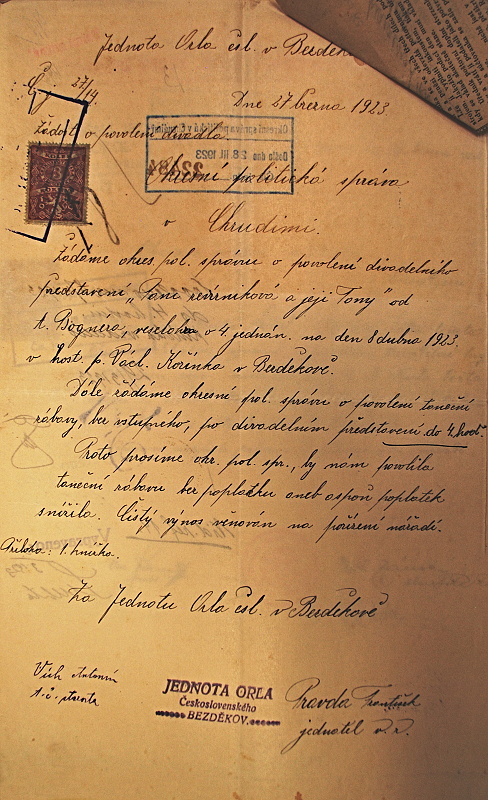 Jednota Orla čsl. v Bezděkově
Čj 27/14
Dne 27 března 1923.
Žádost o povolení divadla.
Došlo dne 28. III. 1923
Okresní politická správa
v Chrudimi.
Žádáme okres. pol. správu o povolení divadelního
představení "Paní revírníková a její Tony" od
A. Bognera, veselohra o 4 jednán. na den 8 dubna 1923.
v host. p. Václ. Kořínka v Bezděkově.
Dále žádáme okresní pol. správu o povolení taneční
zábavy, bez vstupného, po divadelním představení do 4 hod.
Proto prosíme okr. pol. spr., by nám povolila
taneční zábavu bez poplatku aneb aspoň poplatek
snížila. Čistý výnos věnován na pořízení nářadí.
Příloha: 1. knížka.
Za Jednotu Orla čsl. v Bezděkově
Vích Antonín
t. č. starosta
JEDNOTA ORLA
Československého
BEZDĚKOV.
Pravda František
jednatel v. r.